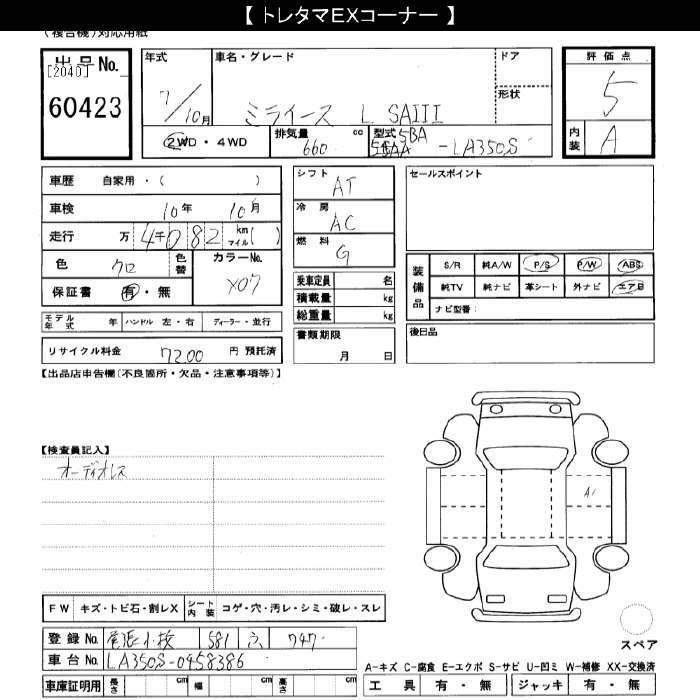 【 トレタマEXコーナー 】
(複合機)対応用紙
出品No.
[2040]
60423
年式
7/10月
車名・グレード
ミライース L SAIII
ドア
形状
2WD・4WD
排気量 660 cc
型式 5BA
-LA350S
評価点
5
内装 A
車歴 自家用・( )
車検 10年 10月
走行 万 4千082 km マイル( )
色 クロ 色替
カラーNo. X07
保証書 有・無
シフト AT
冷房 AC
燃料 G
乗車定員 名
積載量 kg
総重量 kg
セールスポイント
装備品
S/R 純A/W P/S P/W ABS
純TV 純ナビ 革シート 外ナビ エアB
ナビ型番:
モデル年式 年 ハンドル 左・右 ディーラー・並行
リサイクル料金 7200 円 預託済
書類期限
月 日
後日品
【出品店申告欄(不良箇所・欠品・注意事項等)】
【検査員記入】
オーディオレス
A1
FW キズ・トビ石・割レX シート内装 コゲ・穴・汚レ・シミ・破レ・スレ
登録No. 尾張小牧 581 747
車台No. LA350S-0458386
車庫証明用 長さ cm 幅 cm 高さ cm
スペア
A-キズ C-腐食 E-エクボ S-サビ U-凹ミ W-補修 XX-交換済
工具 有・無 ジャッキ 有・無